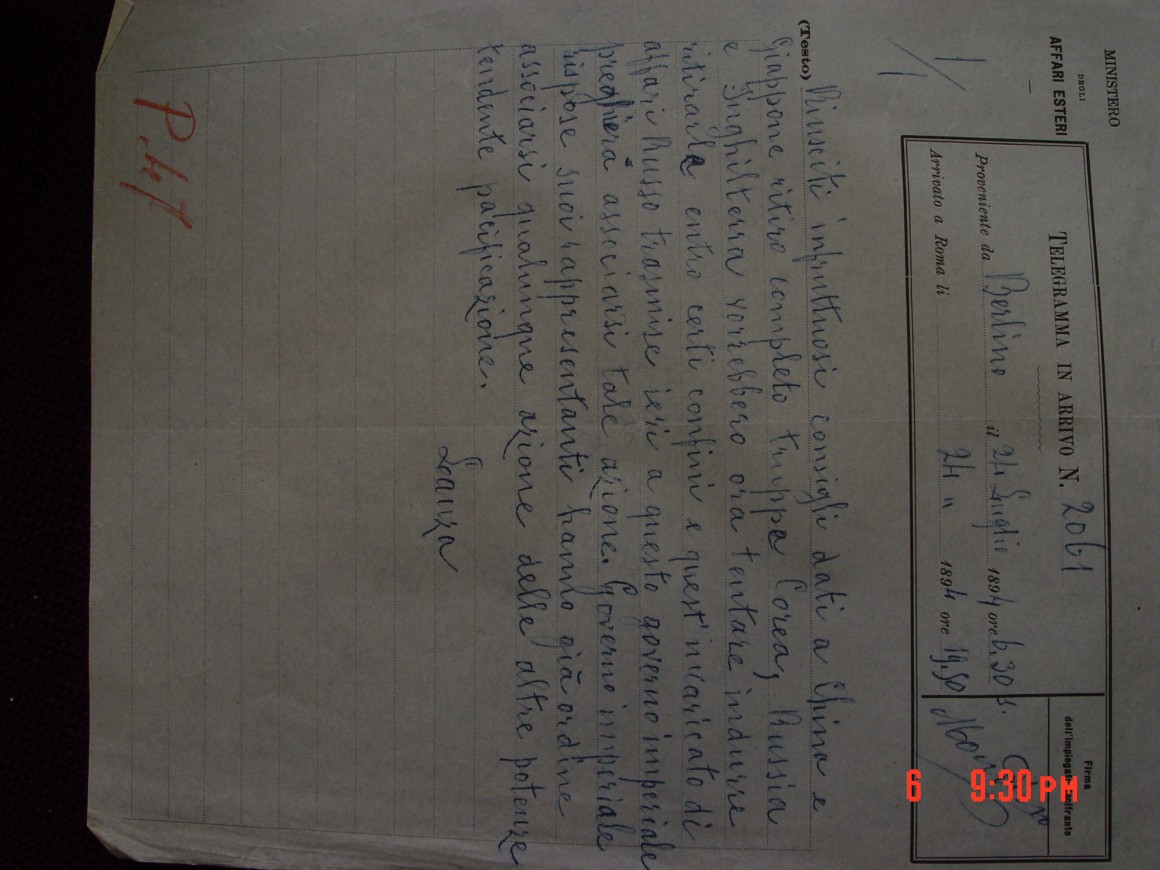 MINISTERO
DEGLI
AFFARI ESTERI
TELEGRAMMA IN ARRIVO N. 2061
Proveniente da Berlino il 24 Luglio 1894 ore 6.30 s.
Arrivato a Roma li 24 " 1894 ore 19.50
Firma
dell'impiegato
(Testo) Riusciti infruttuosi consigli dati a China e
Giappone ritiro completo truppe Corea, Russia
e Inghilterra vorrebbero ora tentare indurre
ritirarle entro certi confini e quest'incaricato di
affari Russo trasmise ieri a questo governo imperiale
preghiera associarsi tale azione. Governo imperiale
rispose suoi rappresentanti hanno già ordine
associarsi qualunque azione delle altre potenze
tendente pacificazione.
Lanza
6 9:30PM